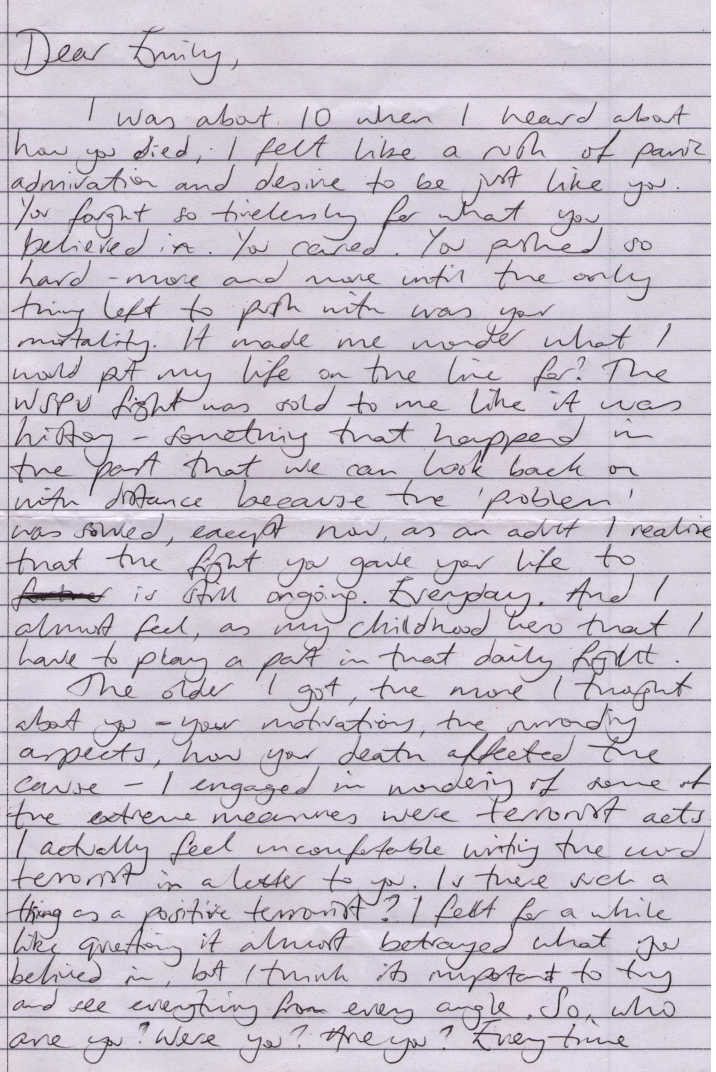 Dear Emily,
I was about 10 when I heard about
how you died, I felt like a rush of panic
admiration and desire to be just like you.
You fought so tirelessly for what you
believed in. You cared. You pushed so
hard - more and more until the only
thing left to push with was your
mortality. It made me wonder what I
would put my life on the line for? The
WSPU fight was sold to me like it was
history - something that happened in
the past that we can look back on
with distance because the 'problem'
was solved, except now, as an adult I realise
that the fight you gave your life to
is still ongoing. Everyday. And I
almost feel, as my childhood hero that I
have to play a part in that daily fight.
The older I got, the more I thought
about you - your motivations, the surrounding
aspects, how your death affected the
cause - I engaged in wondering if some of
the extreme measures were terrorist acts.
I actually feel uncomfortable writing the word
terrorist in a letter to you. Is there such a
thing as a positive terrorist? I felt for a while
like questioning it almost betrayed what you
believed in, but I think its important to try
and see everything from every angle. So, who
are you? Were you? Are you? Everytime